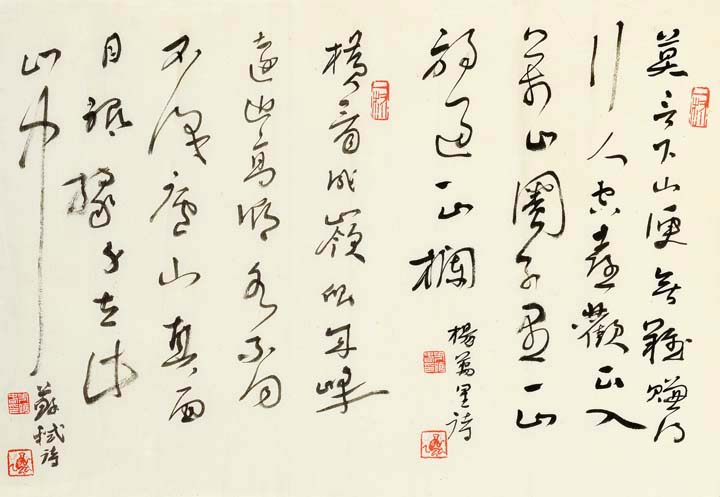 莫言下山便無難賺得
行人空喜歡正入
萬山圈子里一山
放過一山欄
楊萬里詩
橫看成嶺側成峰
遠近高低各不同
不識廬山真面
目祇緣身在此
山中
蘇軾詩